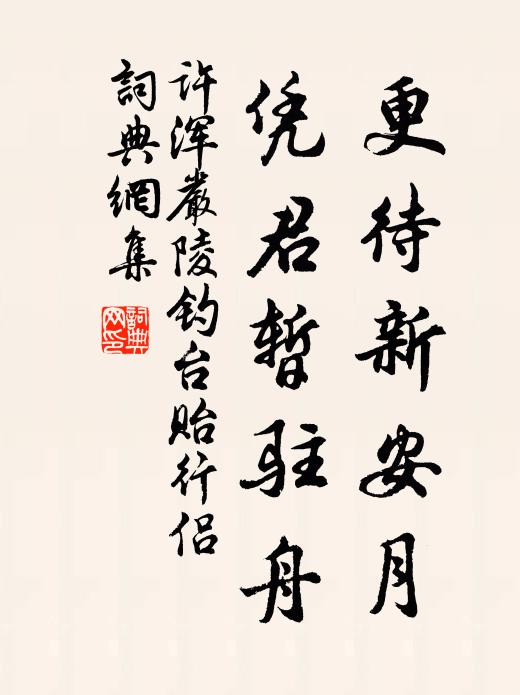 更待新安月
凭君暫駐舟
许浑嚴陵钓台贻行侣
詞典網集
詞典
网印